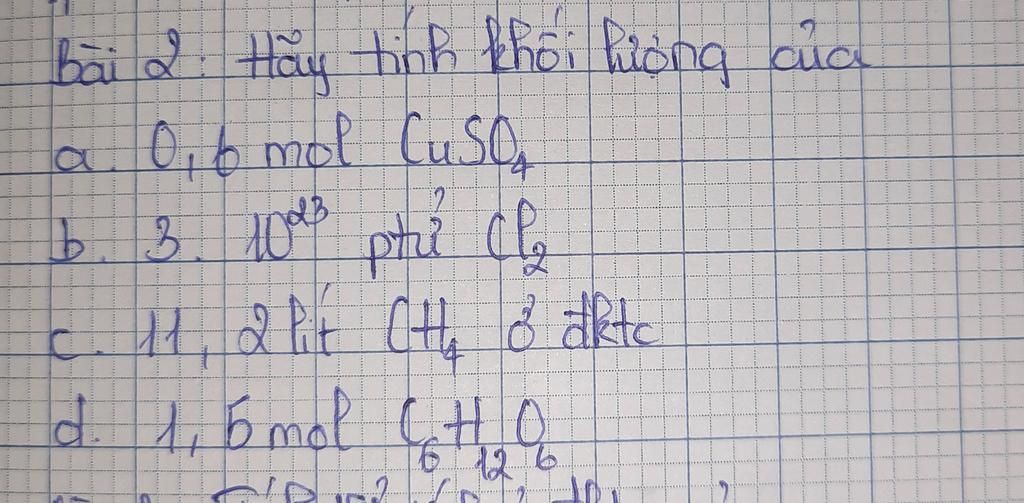 Bài 2: Hãy tính khối lượng của
a. 0,6 mol CuSO₄
b. 3. 10²³ ptử Cl₂
c. 11, 2 lít CH₄ ở đktc
d. 1,5 mol C₆H₁₂O₆